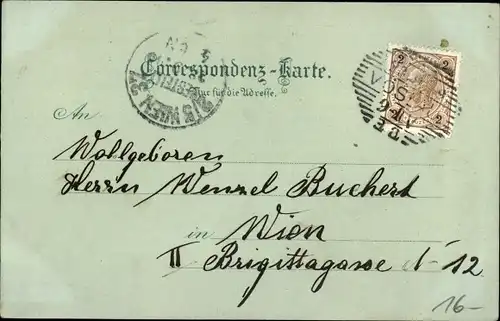 Correspondenz-Karte.
Nur für die Adresse.
2 2
2 2
An
Wollgeboren
Herrn Wenzel Buchert
in Wien
II Brigittagasse 1-12
16-